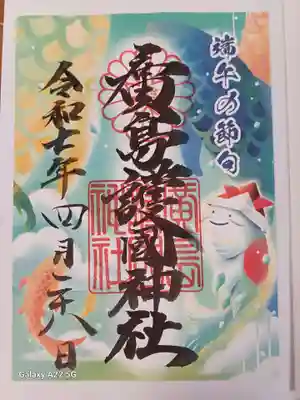 端午の節句
廣島護國神社
令和七年 四月二十八日
廣島護國神社
Galaxy A22 5G